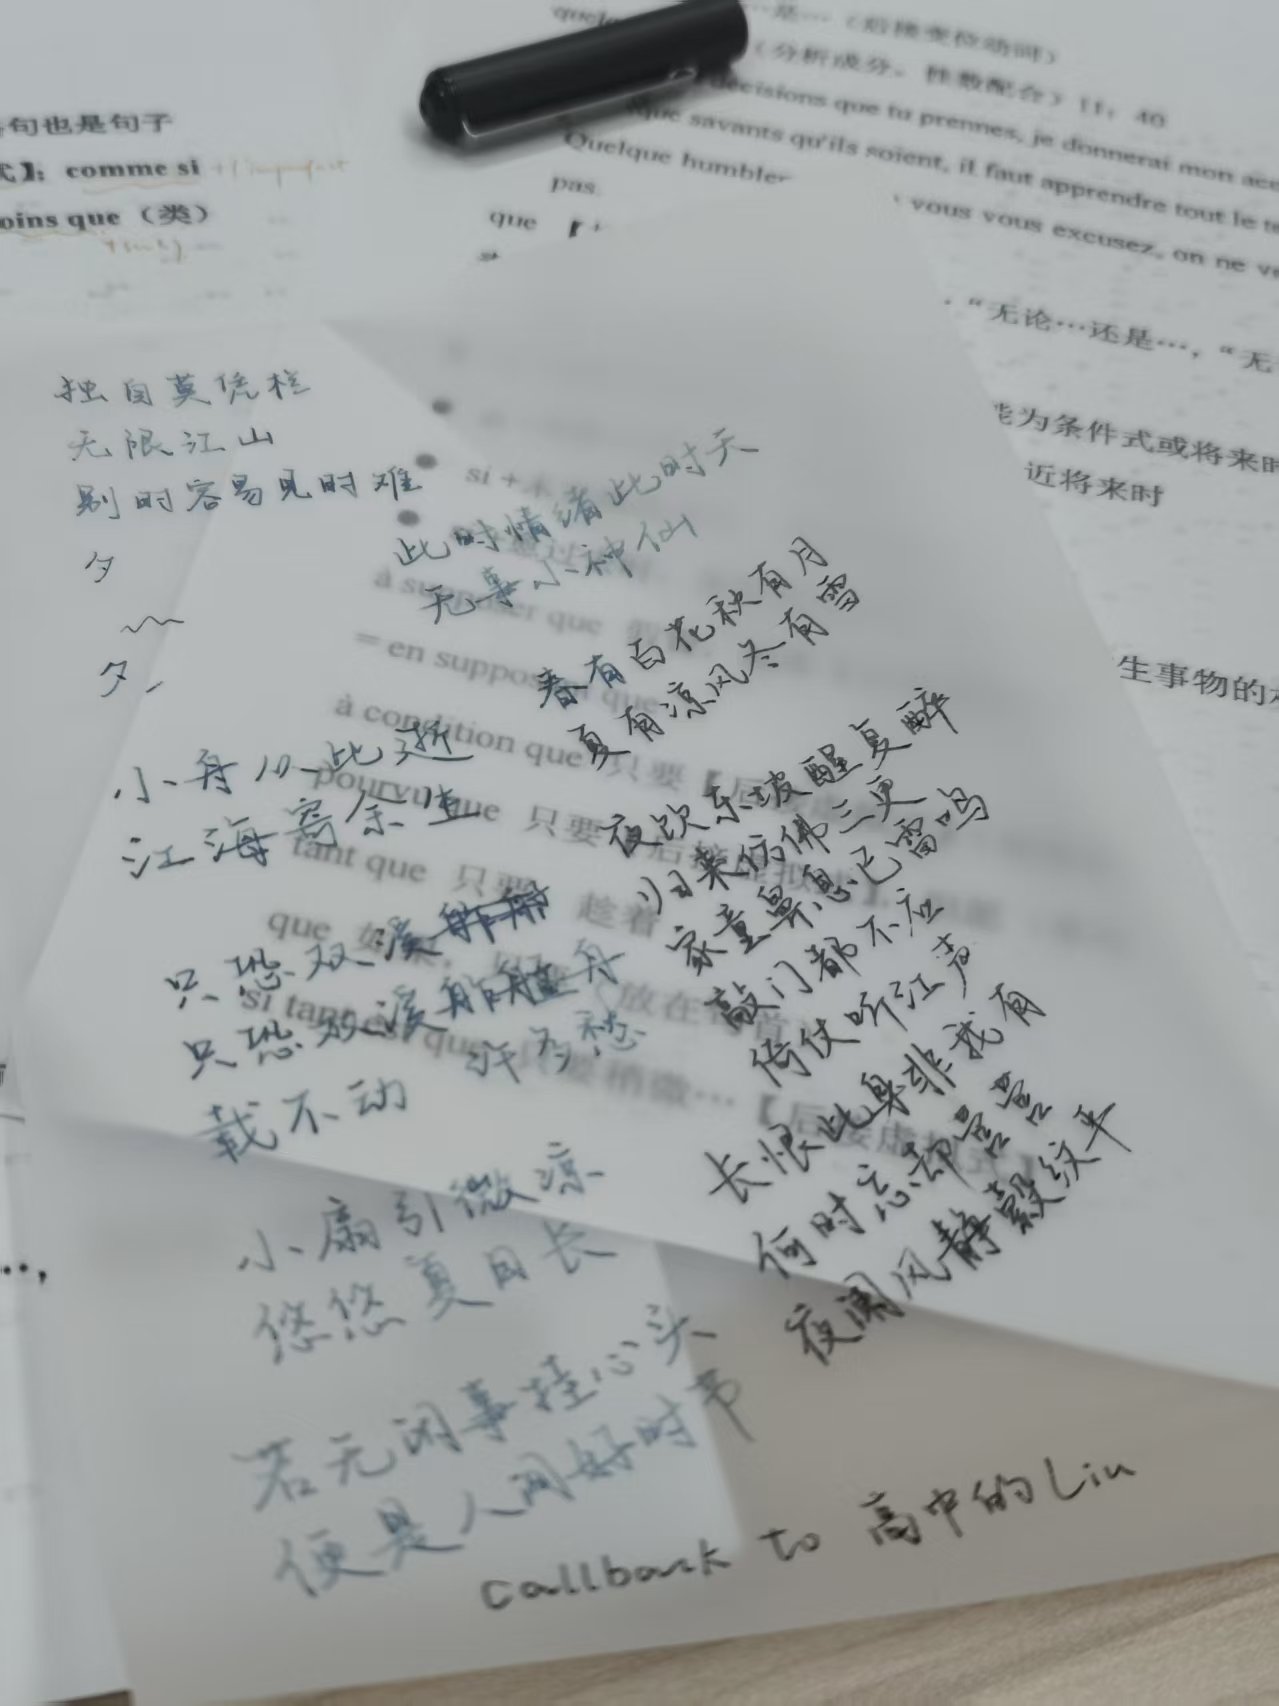 句也是句子
comme si + l'imparfait
oins que（类）
是…（后接变位动词）
（分析成分，性数配合）11：40
decisions que tu prennes, je donnerai mon acc
que savants qu'ils soient, il faut apprendre tout le te
Quelque humble
pas.
vous vous excusez, on ne ve
que
“无论…还是…，“无
能为条件式或将来时
近将来时
生事物的
独自莫凭栏
无限江山
别时容易见时难
夕
夕
小舟从此逝
江海寄余生
只恐双溪舴艋
只恐双溪舴艋舟
载不动 许多愁
小扇引微凉
悠悠夏日长
若无闲事挂心头
便是人间好时节
此时情绪此时天
无事小神仙
春有百花秋有月
夏有凉风冬有雪
夜饮东坡醒复醉
归来仿佛三更
家童鼻息已雷鸣
敲门都不应
倚仗听江声
长恨此身非我有
何时忘却营营
夜阑风静縠纹平
si +
à supposer que
= en supposant que
à condition que 只要【后
pourvu que 只要【后接虚拟式】
tant que 只要，趁着
que 如果，
si tant est que 只要稍微…【后接虚拟式】
callback to 高中的Liu